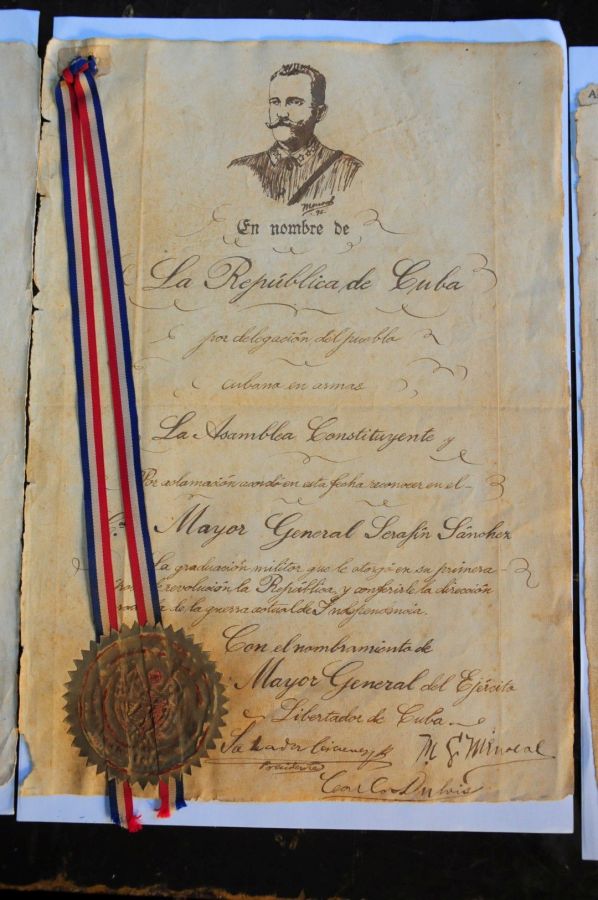 En nombre de
La República de Cuba
por delegación del pueblo
cubano en armas
La Asamblea Constituyente y
Por aclamación acordó en esta fecha reconocer en el
C. Mayor General Serafín Sánchez
La graduación militar que le otorgó en su primera
revolución la República, y conferirle la dirección
de la guerra actual de Independencia.
Con el nombramiento de
Mayor General del Ejército
Libertador de Cuba.
Salvador Cisneros B.
Presidente
M. G. Menocal
Carlos Dubois